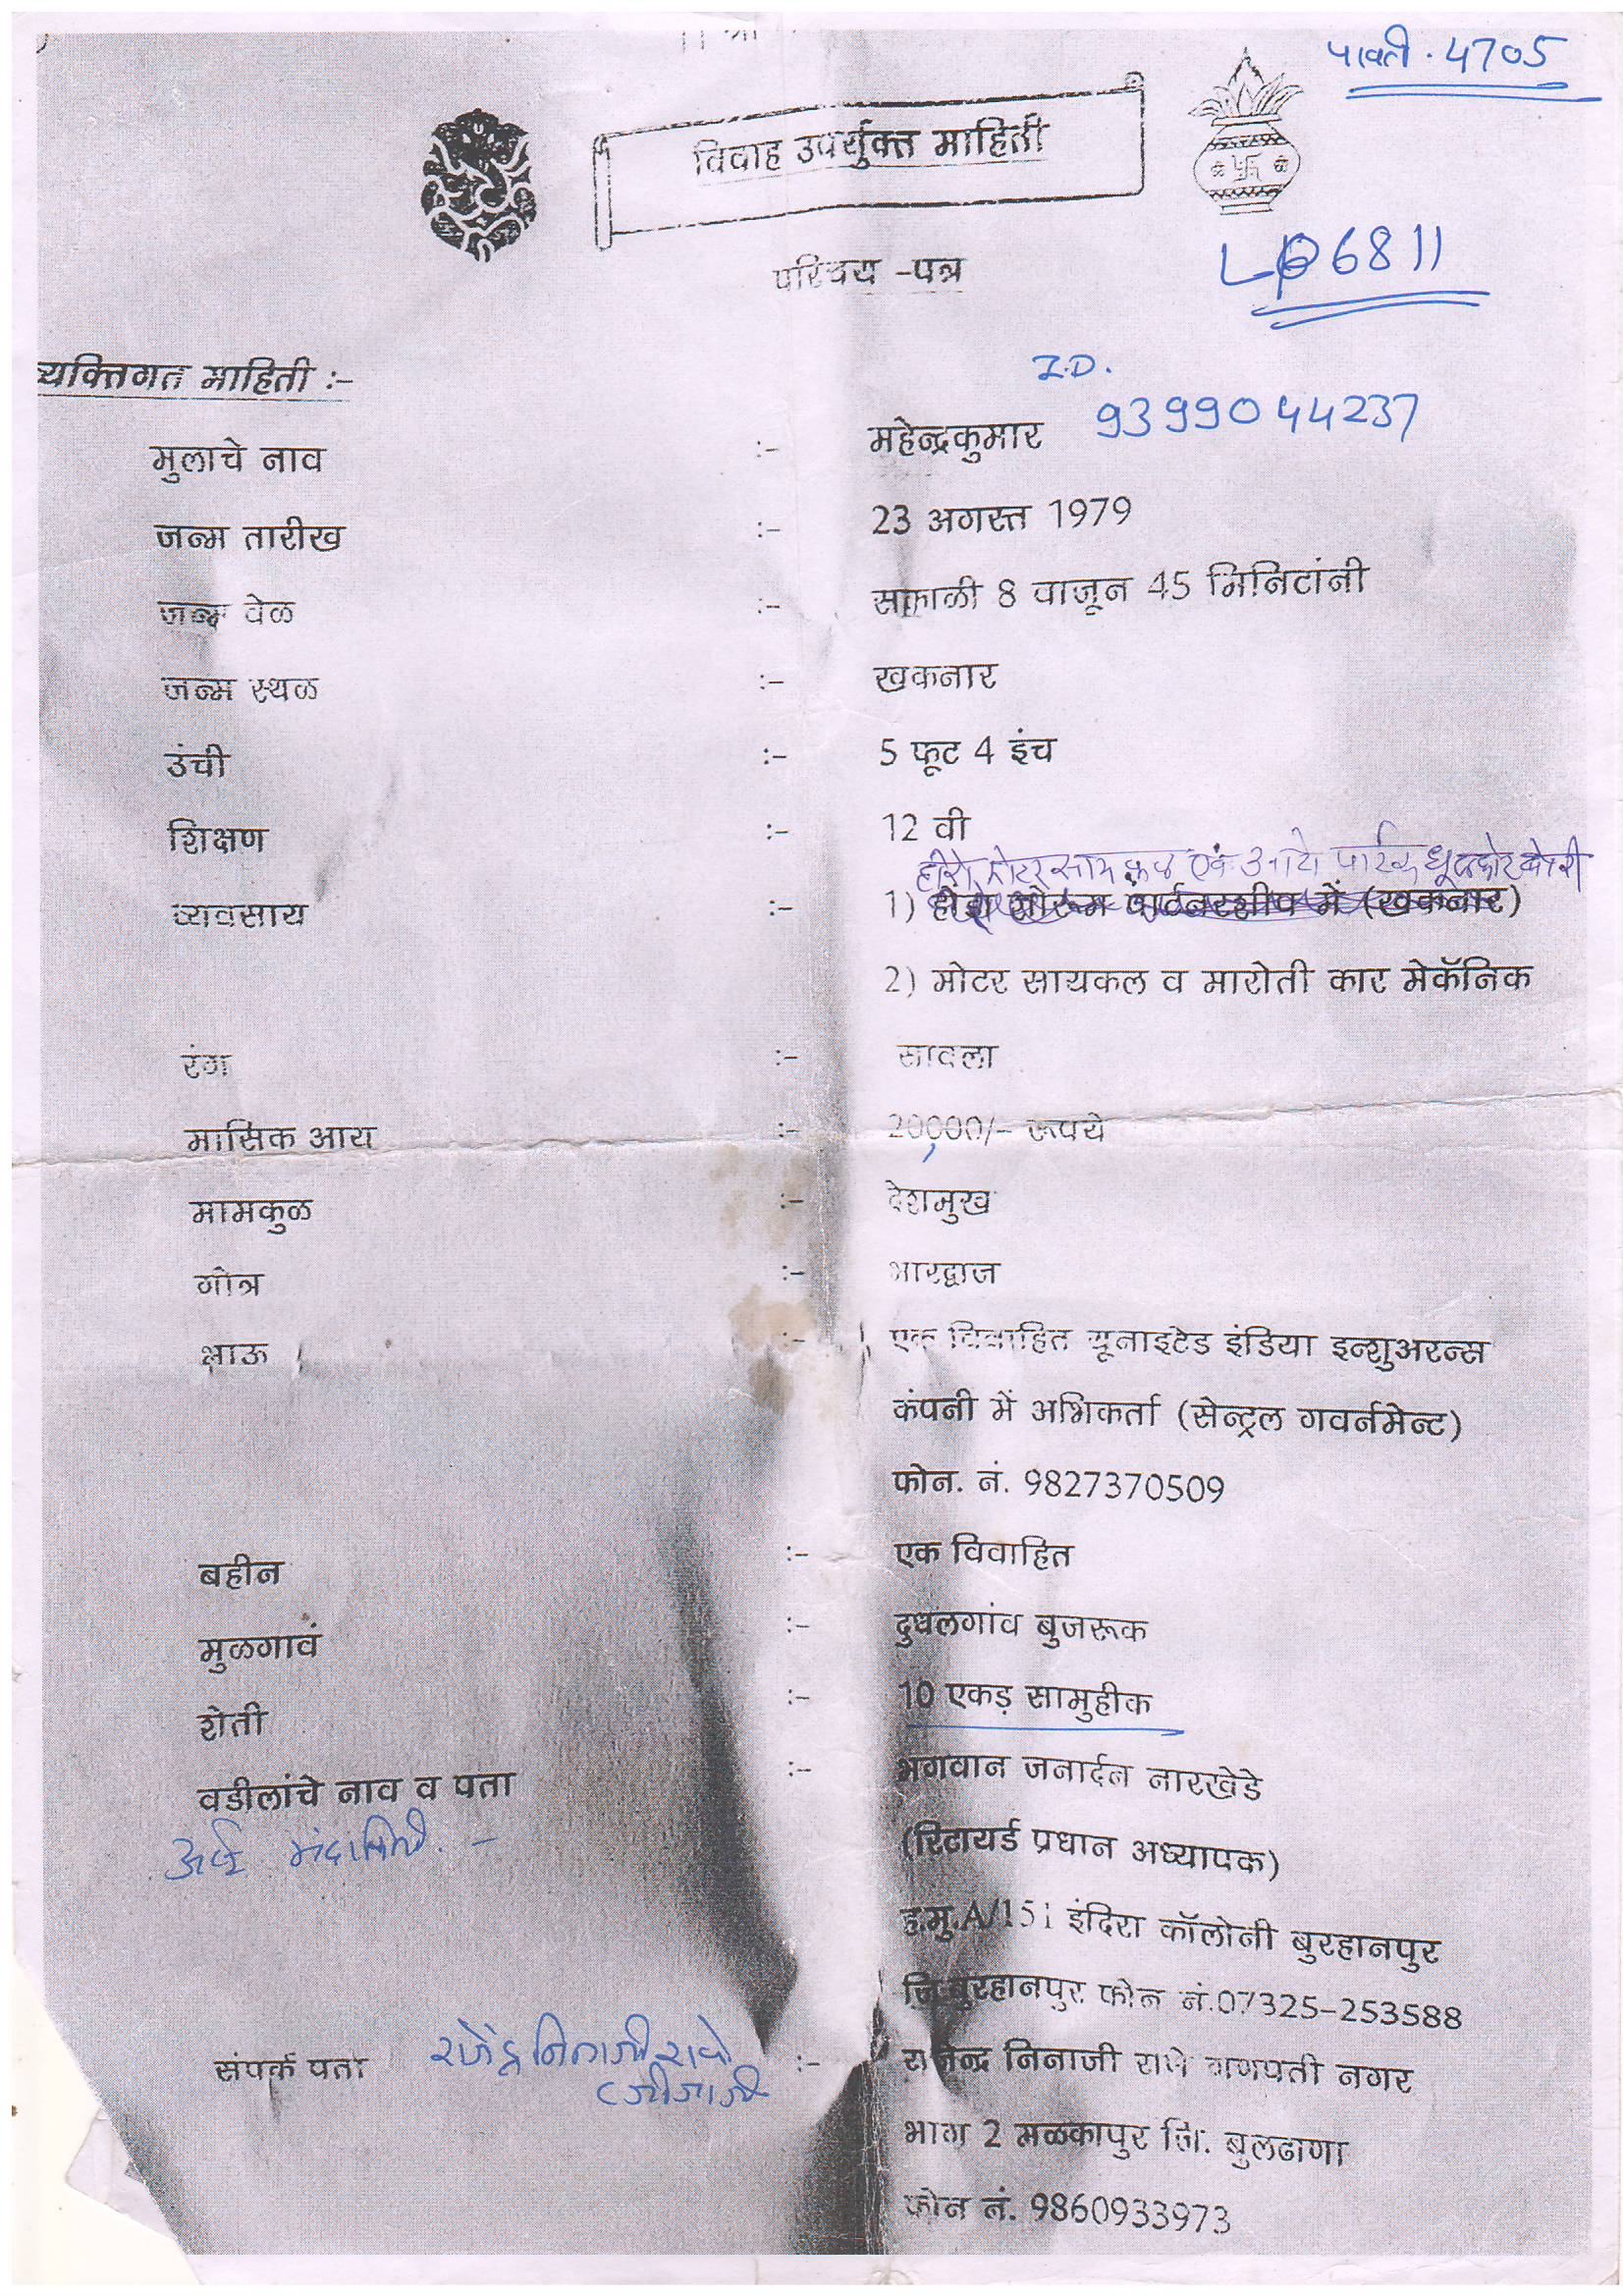 पावती . 4705
विवाह उपर्युक्त माहिती
परिचय -पत्र
6811
व्यक्तिगत माहिती :-
I.D.
मुलाचे नाव :- महेन्द्रकुमार 9399044237
जन्म तारीख :- 23 अगस्त 1979
जन्म वेळ :- सकाळी 8 वाजून 45 मिनिटांनी
जन्म स्थळ :- खकनार
उंची :- 5 फूट 4 इंच
शिक्षण :- 12 वी
हीरो मोटर सायकल एवं आटो पार्टस
व्यवसाय :- 1) होंडा शोरूम पार्टनरशीप में (खकनार)
2) मोटर सायकल व मारोती कार मेकॅनिक
रंग :- सावला
मासिक आय :- 20,000/- रूपये
मामकुळ :- देशमुख
गोत्र :- भारद्वाज
भाऊ :- एक विवाहित यूनाइटेड इंडिया इन्शुअरन्स
कंपनी में अभिकर्ता (सेन्ट्रल गवर्नमेन्ट)
फोन. नं. 9827370509
बहीन :- एक विवाहित
मुळगावं :- दुधलगांव बुजरूक
शेती :- 10 एकड़ सामुहीक
वडीलांचे नाव व पता :- भगवान जनार्दन नारखेडे
(रिटायर्ड प्रधान अध्यापक)
ह.मु.A/151 इंदिरा कॉलोनी बुरहानपुर
जि.बुरहानपुर फोन नं.07325-253588
संपर्क पता राजेंद्र निनाजी राणे :- राजेन्द्र निनाजी राणे गणपती नगर
(जीजाजी
भाग 2 मळकापुर जि. बुलढाणा
फोन नं. 9860933973